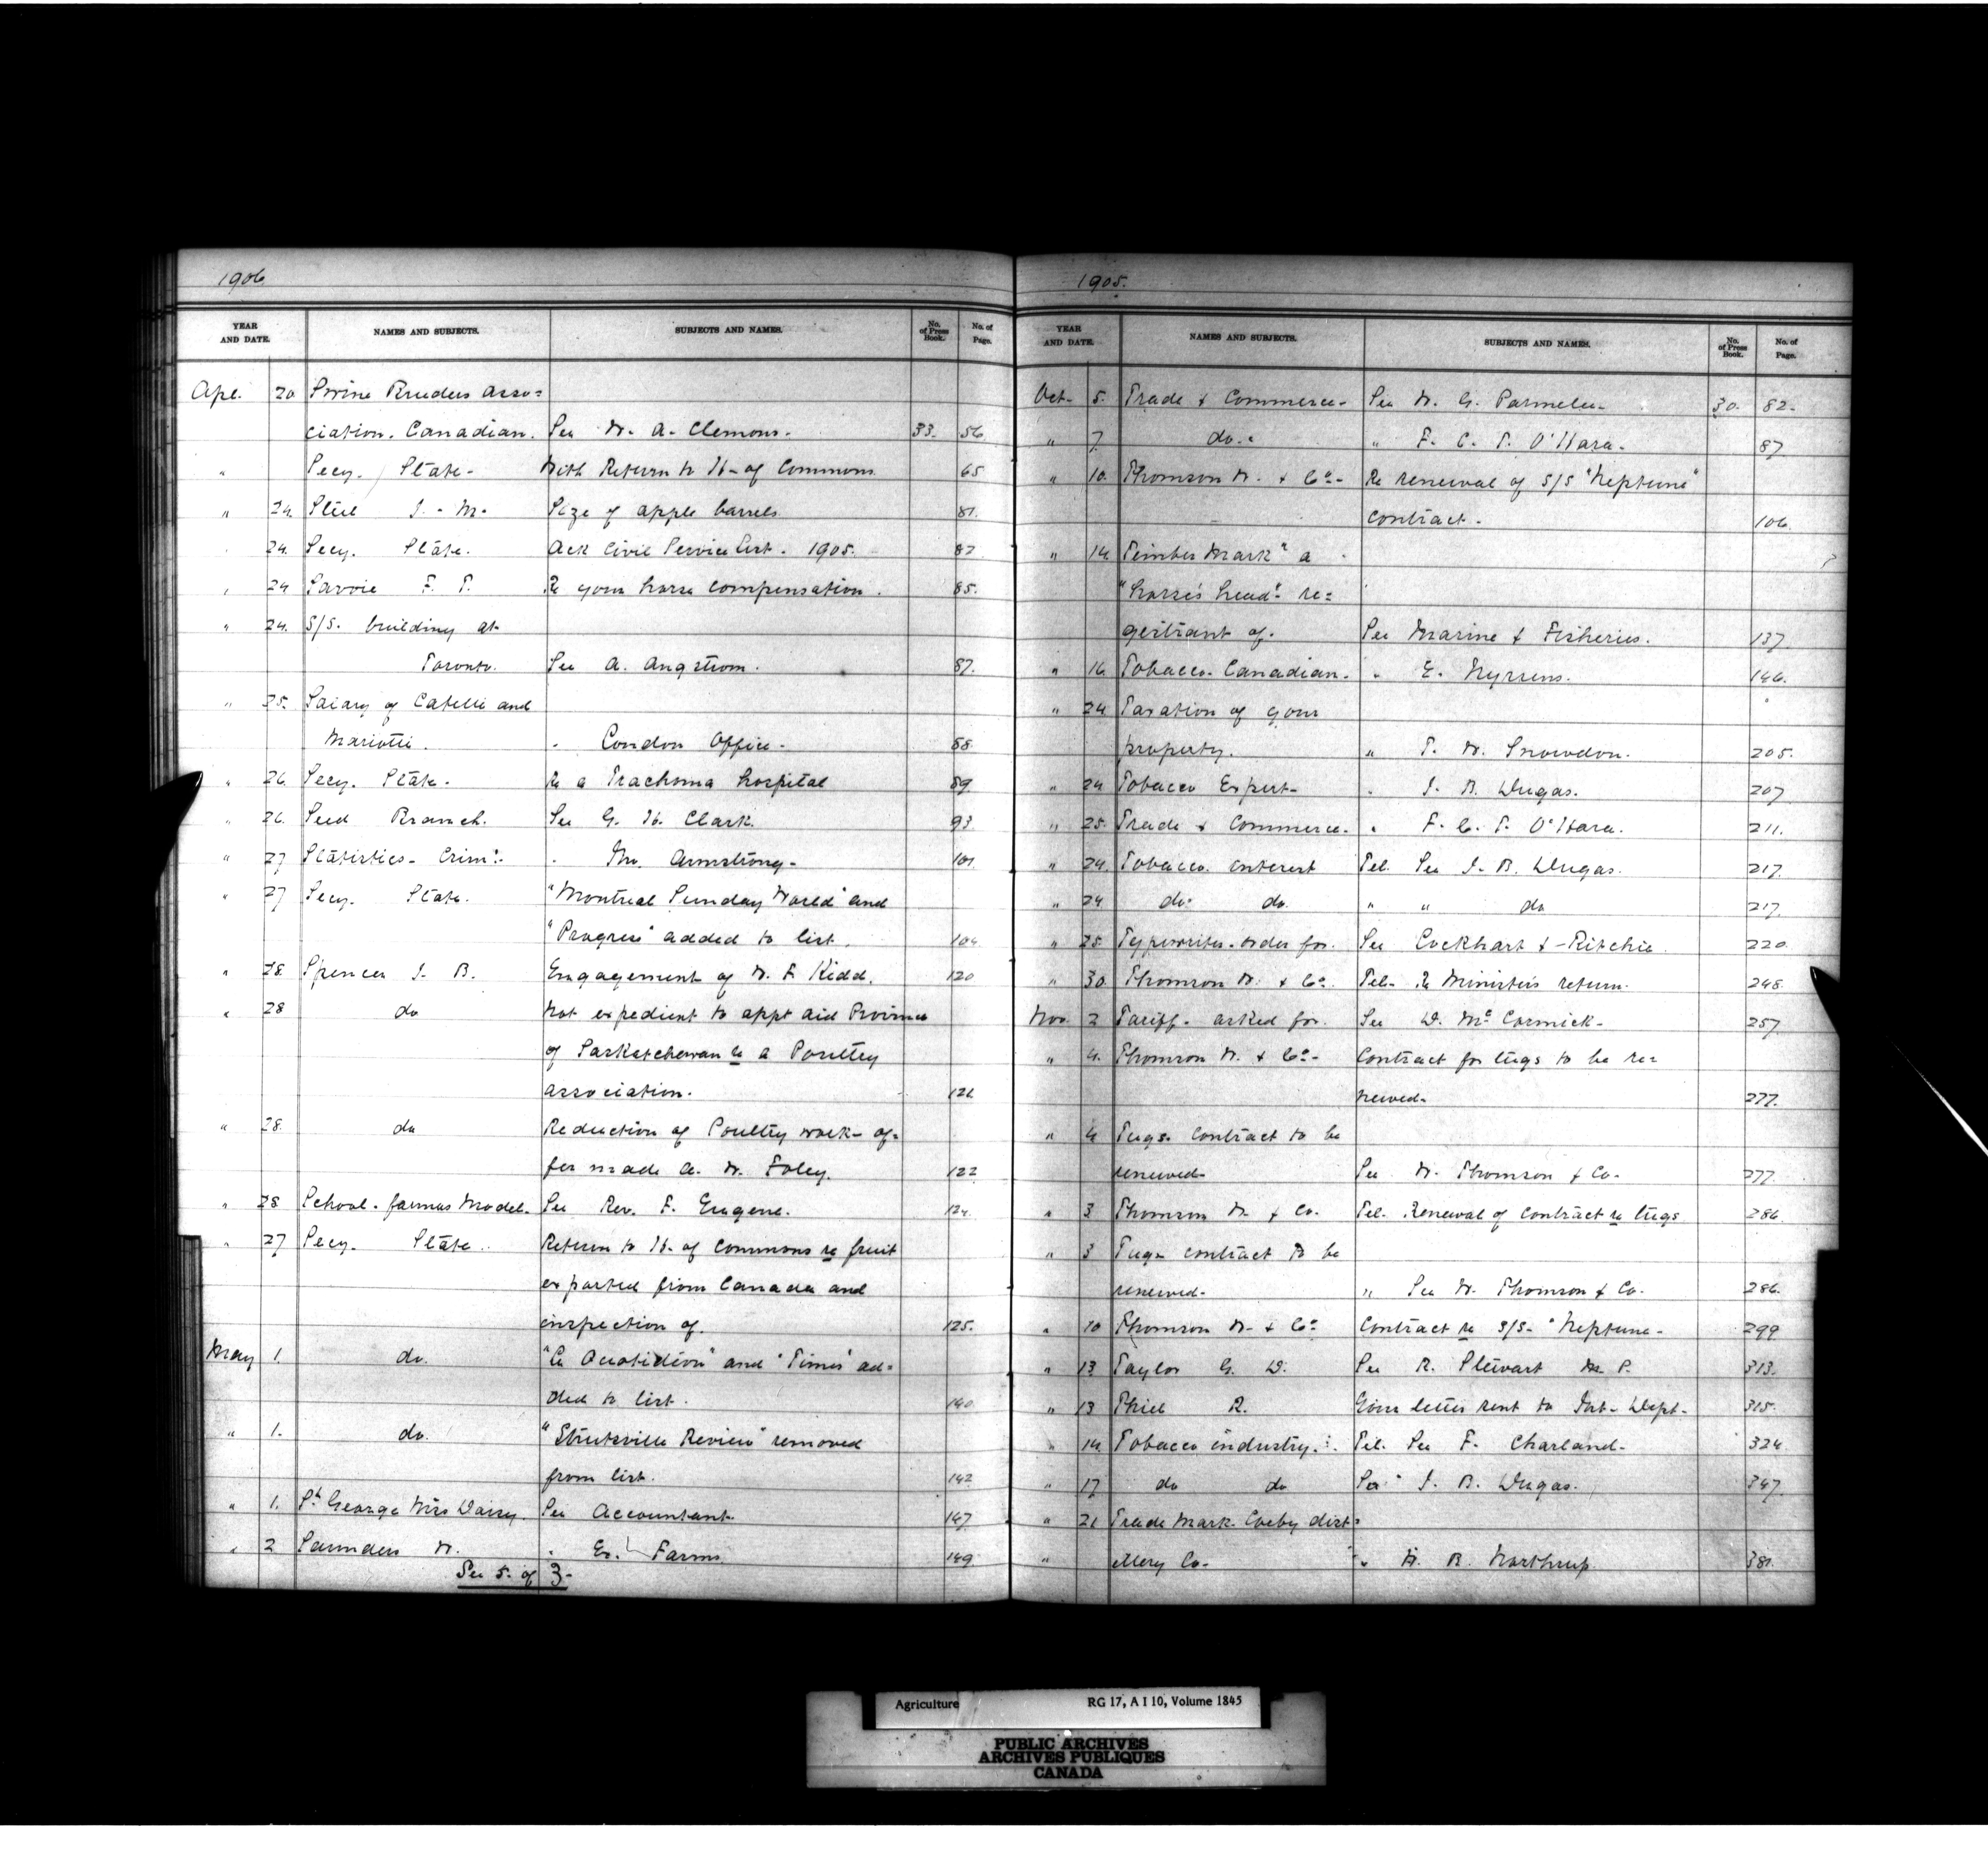 1906
YEAR AND DATE. NAMES AND SUBJECTS. SUBJECTS AND NAMES. No. of Press Book. No. of Page.
Apl. 20 Swine Breeders Asso=
ciation. Canadian. See W. A. Clemons. 33. 56
" Secy. State- With Return to H. of Commons 65
" 24. Steel J. M. Size of apple barrels 81.
" 24. Secy. State. Ack Civil Service List. 1905. 82
" 24 Savoie F. T. Re your horse compensation. 85.
" 24. S/S. building at
Toronto. See A. Angstrom. 87.
" 25. Salary of Catelli and
Mariotti. " London Office. 88
" 26. Secy. State. Re a Trachoma hospital 89
" 26. Seed Branch. See G. H. Clark. 93
" 27 Statistics- Crim:l- " Mr. Armstrong- 101.
" 27 Secy. State. "Montreal Sunday World" and
"Progress" added to list. 104
" 28 Spencer J. B. Engagement of W. F. Kidd. 120
" 28 do Not expedient to appt aid Province
of Saskatchewan re a Poultry
association. 121
" 28. do Reduction of Poultry work- of=
fer made A. W. Foley. 122
" 28 School. farmers Model. See Rev. F. Eugene. 124.
" 27 Secy. State. Return to H. of Commons re fruit
exported from Canada and
inspection of. 125.
May 1. do. "Le Quotidien" and "Times" ad=
ded to list. 140
" 1. do. "Streetsville Review" removed
from list. 142
" 1. St George Mrs Daisy. See Accountant. 147
" 2 Saunders W. " Ex. Farms 149
See S. of 3-
1905.
YEAR AND DATE. NAMES AND SUBJECTS. SUBJECTS AND NAMES. No. of Press Book. No. of Page.
Oct- 5. Trade & Commerce- See W. G. Parmelee- 30. 82-
" 7. do. " F. C. T. O'Hara. 87
" 10. Thomson W. & Co- Re renewal of S/S "Neptune"
contract. 106.
" 14 Timber Mark" a
"horse's head" re=
gistrant of. See Marine & Fisheries. 137
" 16 Tobacco. Canadian. " E. Nyrens. 146.
" 24 Taxation of your
property. " T. W. Snowdon. 205.
" 24 Tobacco Expert- " J. B. Dugas. 207
" 25. Trade & Commerce. " F. C. T. O'Hara. 211.
" 24. Tobacco. interest Tel. See J. B. Dugas. 217.
" 24 do. do. " " do 217.
" 25. Typewriter. order for. See Lockhart & Ritchie. 220.
" 30. Thomson W. & Co. Tel- Re Minister's return. 248.
Nov. 2 Tariff- asked for. See D. McCormick- 257.
" 4. Thomson W. & Co- Contract for tugs to be re=
newed- 277.
" 4 Tugs. Contract to be
renewed- See W. Thomson & Co- 277.
" 3 Thomson W. & Co. Tel- Renewal of contract re tugs 286.
" 3 Tugs contract to be
renewed- " See W. Thomson & Co. 286.
" 10 Thomson W. & Co Contract re S/S- "Neptune- 299
" 13 Taylor G. D. See R. Stewart M. P. 313.
" 13 Thiel R. Your letter sent to Int- Dept- 315.
" 14. Tobacco industry. Tel. See F. Charland- 324
" 17 do do See J. B. Dugas. 347
" 21 Trade Mark. Corby dist=
" illery Co- " W. B. Northrup 381.
Agriculture RG 17, A I 10, Volume 1845
PUBLIC ARCHIVES
ARCHIVES PUBLIQUES
CANADA